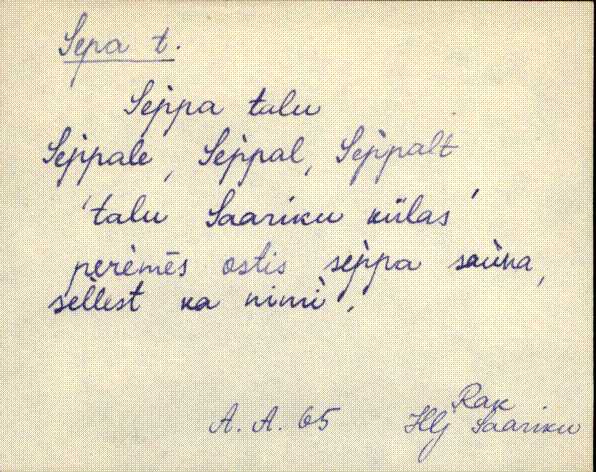 Sepa t.
Seppa talu
Seppale, Seppal, Seppalt
'talu Saariku külas'
perèmēs ostis seppa saùna,
sellest ka nimi.
Rak
A. A. 65 Hlj Saariku